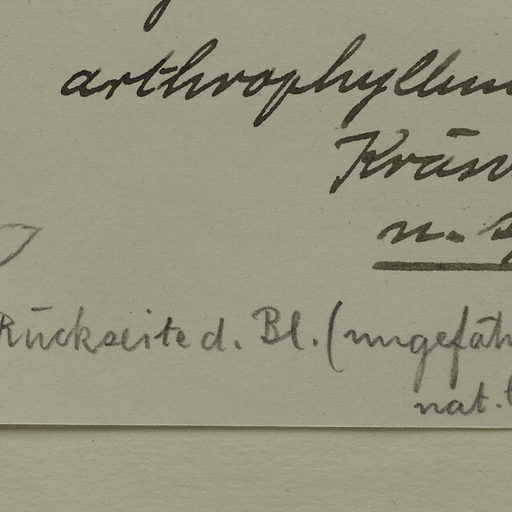 arthrophyllum
Kräus
n. s
Rückseite d. Bl. (ungefäh
nat.